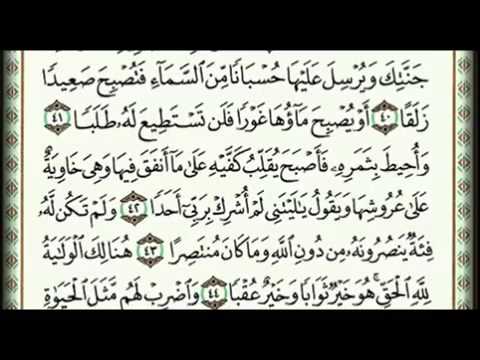 جَنَّتِكَ وَيُرْسِلَ عَلَيْهَا حُسْبَانًا مِّنَ ٱلسَّمَآءِ فَتُصْبِحَ صَعِيدًا
زَلَقًا ٤٠ أَوْ يُصْبِحَ مَآؤُهَا غَوْرًا فَلَن تَسْتَطِيعَ لَهُۥ طَلَبًا ٤١
وَأُحِيطَ بِثَمَرِهِۦ فَأَصْبَحَ يُقَلِّبُ كَفَّيْهِ عَلَىٰ مَآ أَنفَقَ فِيهَا وَهِىَ خَاوِيَةٌ
عَلَىٰ عُرُوشِهَا وَيَقُولُ يَٰلَيْتَنِى لَمْ أُشْرِكْ بِرَبِّىٓ أَحَدًا ٤٢ وَلَمْ تَكُن لَّهُۥ
فِئَةٌ يَنصُرُونَهُۥ مِن دُونِ ٱللَّهِ وَمَا كَانَ مُنتَصِرًا ٤٣ هُنَالِكَ ٱلْوَلَٰيَةُ
لِلَّهِ ٱلْحَقِّ ۚ هُوَ خَيْرٌ ثَوَابًا وَخَيْرٌ عُقْبًا ٤٤ وَٱضْرِبْ لَهُم مَّثَلَ ٱلْحَيَوٰةِ